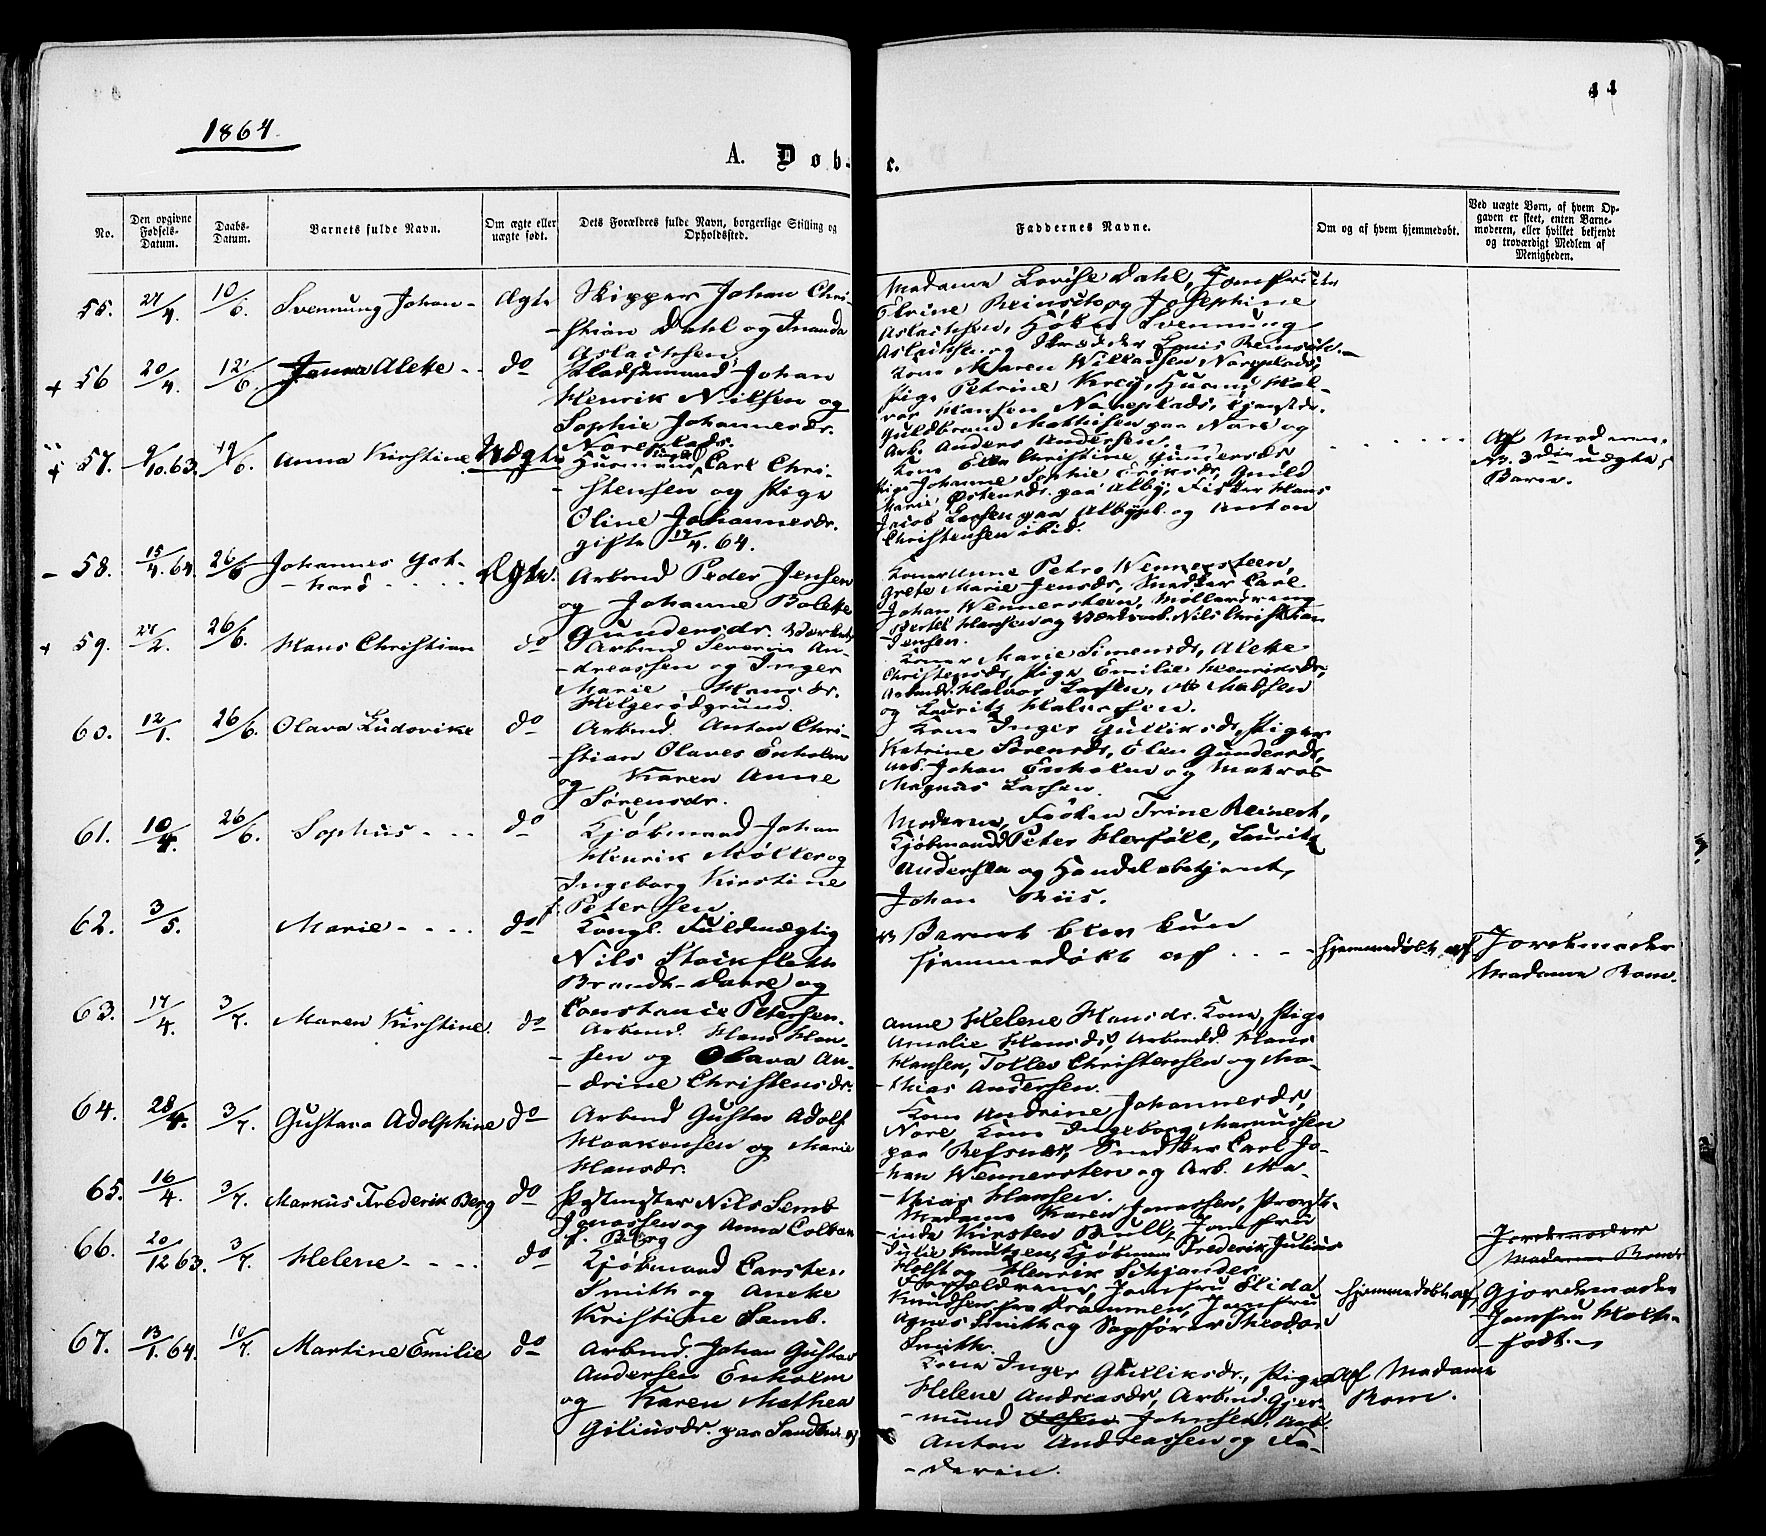 1864.
44
A. Døb-
e.
No.
Den opgivne Fødsels-Datum.
Daabs-Datum.
Barnets fulde Navn.
Om ægte eller uægte født.
Dets Forældres fulde Navn, borgerlige Stilling og Opholdssted.
Faddernes Navne.
Om og af hvem hjemmedøbt.
Ved uægte Børn, af hvem Opgaven er skeet, enten Barnemoderen, eller hvilket bekjendt og troværdigt Medlem af Menigheden.
55. 27/4. 10/6. Svennung Johan - Ægte
Skipper Johan Chri-
-stian Dahl og Inanda
Aslachsen.
Madame Lovise Dahl, Jomfruerne
Elrine Reinsch og Josephine
Aslachsen, Høker Svennung
Aslachsen og Skrædder Louis Reinsch.
+ 56 20/4. 12/6. Jenna Aleke - - do
Pladsemand Johan
Henrik Nilsen og
Sophie Johannesdr.
Noreplads.
Kone Maren Willadsen, Noreplads,
Pige Petrine Krey, Husmd Hal-
vor Hansen Noreplads, Tjenestdr.
Guldbrand Mathisen paa Nore og
Arb. Anders Andersen.
+ 57. 9/10.63. 19/6. Anna Kirstine Uægte
Husmand Carl Chri-
-stensen og Pige
Oline Johannesdr.
gifte 17/4.64.
Kone Ellen Christine Gundersdr,
Pige Johanne Sophie Eriksdr, Gunild
Marie Østensdr. paa Alby, Fisker Hans
Jacob Larsen paa Albypl. og Anton
Christensen ibid.
Af Moderen.
No. 3die uægte
Barn.
- 58. 15/4.64 26/6 Johannes Got-
-hard - - - - Ægte.
Arbmd Peder Jensen
og Johanne Bolette
Gundersdr. Værket
Kone Anne Petra Wennersteen,
Grete Marie Jensdr, Snedker Carl
Johan Wennersteen, Møllersvend
Bertel Hansen og Værksarb. Nils Christian
Jensen.
+ 59. 27/2. 26/6. Hans Christian do
Arbmd Severin An-
-dreassen og Inger
Marie Hansdr.
Helgerødgrund.
Koner Marie Simensdr, Aleke
Christensdr, Pige Emilie Henriksdr,
Arbmd. Halvor Larsen, Madsen
og Lauritz Halvorsen.
60. 12/1. 26/6. Olava Ludovike do
Arbmd. Anton Chri-
-stian Olaves Enholm
og Karen Anne
Sørensdr.
Kone Inger Gulliksdr, Piger
Katrine Sørensdr, Elen Gundersdr,
Arb. Johan Enholm og Matros
Magnus Larsen.
61. 10/4. 26/6. Sophus - - - do
Kjøbmand Johan
Henrik Møller og
Ingeborg Kirstine
f. Petersen.
Moderen, Frøken Trine Reinert,
Kjøbmænd Peter Herføll, Lauritz
Andersen og Handelsbetjent,
Johan Riis.
62. 3/5. Marie - - - - do
Kongl. Fuldmægtig
Nils Stockfleth
Brandt-Daae og
Constance Petersen.
Barnet blev kun
hjemmedøbt af - - -
hjemmedøbt af
Jordemoder
Madame Rom.
63. 17/4. 3/7. Maren Kirstine. do
Arbmd. Hans Han-
-sen og Olava An-
-drine Christensdr.
Anne Helene Hansdr. Kone, Pige
Amalie Hansdr, Arbmd. Hans
Hansen, Tollev Christensen og Ma-
-thias Andersen.
64. 28/4. 3/7. Gustava Adolphine do
Arbmd Gustav Adolf
Haakonsen og Marie
Hansdr.
Kone Andrine Johannesdr,
Nore Kone Ingeborg Marcussen
paa Refsnes, Snedker Carl Jo-
han Wennersten og Arb. Ma-
-thias Hansen.
65. 16/4. 3/7. Markus Frederik Berg do
Postmester Nils Semb
Jonassen og Anna Colban
f. Berg
Madame Karen Jonassen, Provst-
inde Kirsten Bull, Jomfru
Julie Knutzen, Kjøbmænd Frederik Julius
Holst og Henrik Schjander
66. 20/12 63. 3/7. Helene - - - - do
Kjøbmand Carsten
Smith og Aneke
Kristine Semb.
Forældrene, Jomfru Elida
Knudsen fra Drammen, Jomfru
Agnes Smith og Sagfører Theodor
Smith.
hjemmedøbt af
Jordemoder
Madame Rom
Gjordemoder
Jomfru Holm-
-fodt.
67. 13/1.64. 10/7. Martine Emilie do
Arbmd. Johan Gustav
Andersen Enholm
og Karen Mathea
Giliusdr. paa Sandbu.
Kone Inger Gulliksdr., Pige
Helene Andreasdr, Arbmd. Gjer-
-mund Johnsen, Arb.
Anton Andreassen og Fa-
-deren.
Af Madame
Rom.